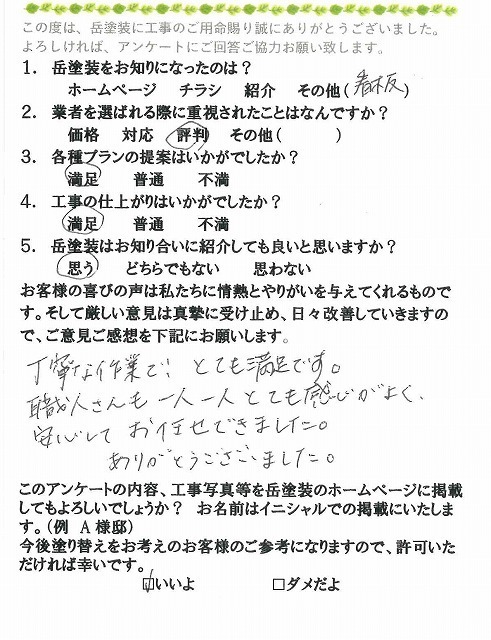 この度は、岳塗装に工事のご用命賜り誠にありがとうございました。
よろしければ、アンケートにご回答ご協力お願い致します。
1. 岳塗装をお知りになったのは?
ホームページ チラシ 紹介 その他(看板)
2. 業者を選ばれる際に重視されたことはなんですか?
価格 対応 評判 その他( )
3. 各種プランの提案はいかがでしたか?
満足 普通 不満
4. 工事の仕上がりはいかがでしたか?
満足 普通 不満
5. 岳塗装はお知り合いに紹介しても良いと思いますか?
思う どちらでもない 思わない
お客様の喜びの声は私たちに情熱とやりがいを与えてくれるもので
す。そして厳しい意見は真摯に受け止め、日々改善していきますの
で、ご意見ご感想を下記にお願いします。
丁寧な作業で! とても満足です。
職人さんも一人一人とても感じがよく、
安心して お任せできました。
ありがとうございました。
このアンケートの内容、工事写真等を岳塗装のホームページに掲載
してもよろしいでしょうか? お名前はイニシャルでの掲載にいたしま
す。(例 A 様邸)
今後塗り替えをお考えのお客様のご参考になりますので、許可いた
だければ幸いです。
☑いいよ □ダメだよ